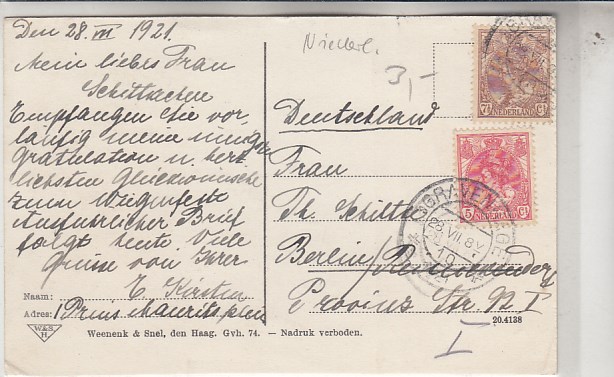 Den 28. VII 1921.
Mein liebes Frau
Empfangen Sie vor
läufig meine innige
Gratulation u. herz
lichsten Glückwünsche
zum Wiegenfeste
Ausführlicher Brief
folgt heute. Viele
Grüsse von Ihrer
E. Kirsten
Naam:
Adres: 1 Prins Mauritsplein
W&S
H
Weenenk & Snel, den Haag. Gvh. 74. — Nadruk verboden.
Niederl.
3,-
7½ Ct
NEDERLAND
5 Ct
NEDERLAND
GRAVEN
28 VII 8V
Deutschland
Frau
Th.
Berlin/Reinickendorf
Provinz Str. 92 I
20.4138
I